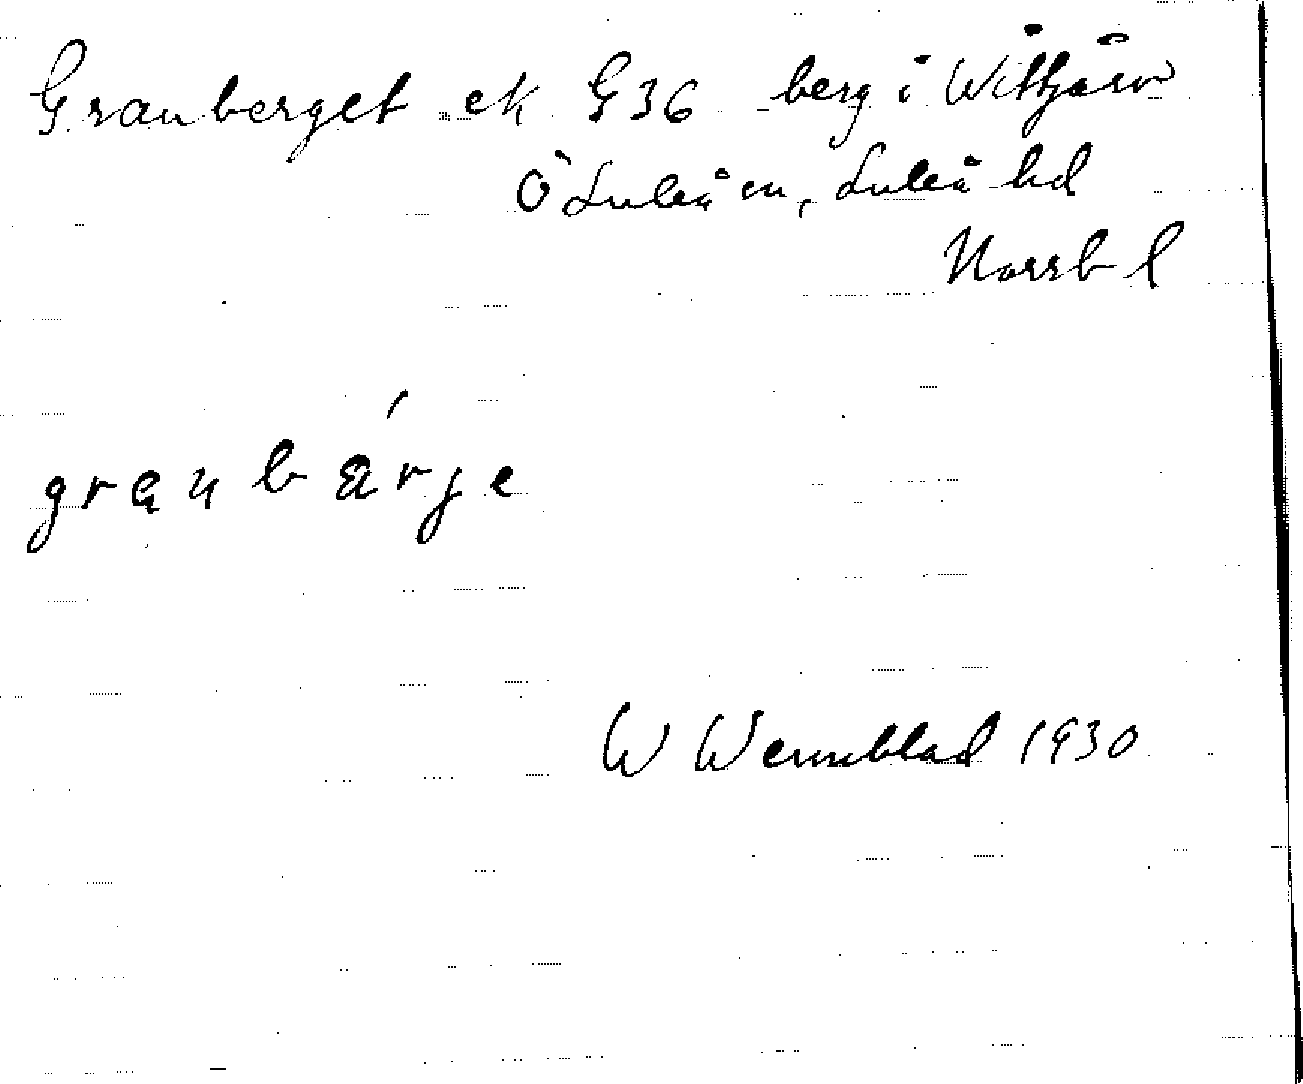 Granberget ek G36 berg i Wittjärv
Ö Luleå sn, Luleå hd
Norrb l
granbärje
W Wennblad 1930